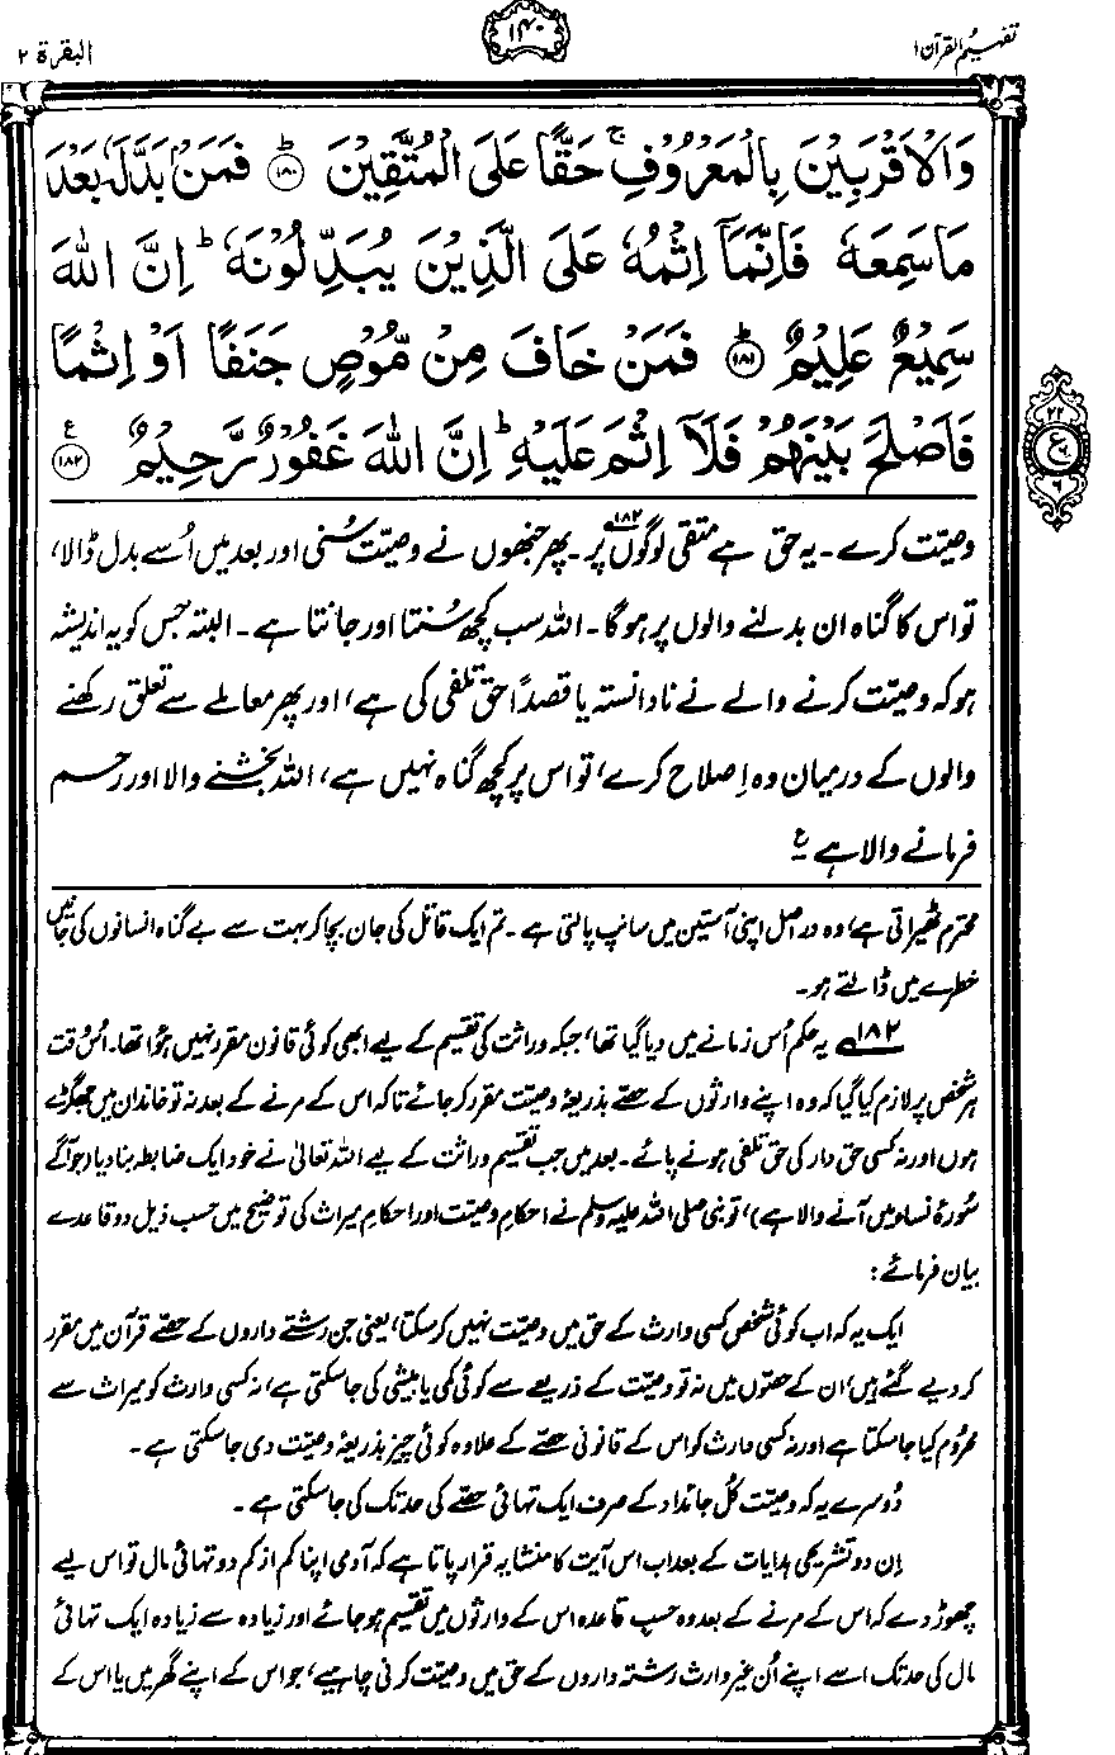 تفہیم القرآن ۱
۱۴۰
البقرة ۲
وَالْاَقْرَبِيْنَ بِالْمَعْرُوْفِ ۚ حَقًّا عَلَى الْمُتَّقِيْنَ ؕ ۱۸۰ فَمَنْۢ بَدَّلَهٗ بَعْدَ
مَا سَمِعَهٗ فَاِنَّمَاۤ اِثْمُهٗ عَلَى الَّذِيْنَ يُبَدِّلُوْنَهٗ ؕ اِنَّ اللّٰهَ
سَمِيْعٌ عَلِيْمٌ ؕ ۱۸۱ فَمَنْ خَافَ مِنْ مُّوْصٍ جَنَفًا اَوْ اِثْمًا
فَاَصْلَحَ بَيْنَهُمْ فَلَاۤ اِثْمَ عَلَيْهِ ؕ اِنَّ اللّٰهَ غَفُوْرٌ رَّحِيْمٌ ۱۸۲ ع
۲۲
ع
۶
وصیّت کرے۔ یہ حق ہے متقی لوگوں پر۱۸۲۔ پھر جنھوں نے وصیّت سُنی اور بعد میں اُسے بدل ڈالا،
تو اس کا گناہ ان بدلنے والوں پر ہوگا۔ اللہ سب کچھ سُنتا اور جانتا ہے۔ البتہ جس کو یہ اندیشہ
ہو کہ وصیّت کرنے والے نے نادانستہ یا قصداً حق تلفی کی ہے، اور پھر معاملے سے تعلق رکھنے
والوں کے درمیان وہ اِصلاح کرے، تو اس پر کچھ گناہ نہیں ہے، اللہ بخشنے والا اور رحم
فرمانے والا ہے ع
محترم ٹھیراتی ہے، وہ دراصل اپنی آستین میں سانپ پالتی ہے۔ تم ایک قاتل کی جان بچا کر بہت سے بے گناہ انسانوں کی جانیں
خطرے میں ڈالتے ہو۔
۱۸۲ یہ حکم اُس زمانے میں دیا گیا تھا، جبکہ وراثت کی تقسیم کے لیے ابھی کوئی قانون مقرر نہیں ہُوا تھا۔ اُس وقت
ہر شخص پر لازم کیا گیا کہ وہ اپنے وارثوں کے حصّے بذریعۂ وصیّت مقرر کر جائے تاکہ اس کے مرنے کے بعد نہ تو خاندان میں جھگڑے
ہوں اور نہ کسی حق دار کی حق تلفی ہونے پائے۔ بعد میں جب تقسیمِ وراثت کے لیے اللہ تعالیٰ نے خود ایک ضابطہ بنا دیا (جو آگے
سُورۂ نساء میں آنے والا ہے)، تو نبی صلی اللہ علیہ وسلم نے احکامِ وصیّت اور احکامِ میراث کی توضیح میں حسب ذیل دو قاعدے
بیان فرمائے:
ایک یہ کہ اب کوئی شخص کسی وارث کے حق میں وصیّت نہیں کر سکتا، یعنی جن رشتے داروں کے حصّے قرآن میں مقرر
کر دیے گئے ہیں، ان کے حصّوں میں نہ تو وصیّت کے ذریعے سے کوئی کمی یا بیشی کی جا سکتی ہے، نہ کسی وارث کو میراث سے
محرُوم کیا جا سکتا ہے اور نہ کسی وارث کو اس کے قانونی حصّے کے علاوہ کوئی چیز بذریعۂ وصیّت دی جا سکتی ہے۔
دُوسرے یہ کہ وصیّت کُل جائداد کے صرف ایک تہائی حصّے کی حد تک کی جا سکتی ہے۔
اِن دو تشریحی ہدایات کے بعد اب اس آیت کا منشا یہ قرار پاتا ہے کہ آدمی اپنا کم از کم دو تہائی مال تو اس لیے
چھوڑ دے کہ اس کے مرنے کے بعد وہ حسبِ قاعدہ اس کے وارثوں میں تقسیم ہو جائے اور زیادہ سے زیادہ ایک تہائی
مال کی حد تک اسے اپنے اُن غیر وارث رشتہ داروں کے حق میں وصیّت کرنی چاہیے، جو اس کے اپنے گھر میں یا اس کے